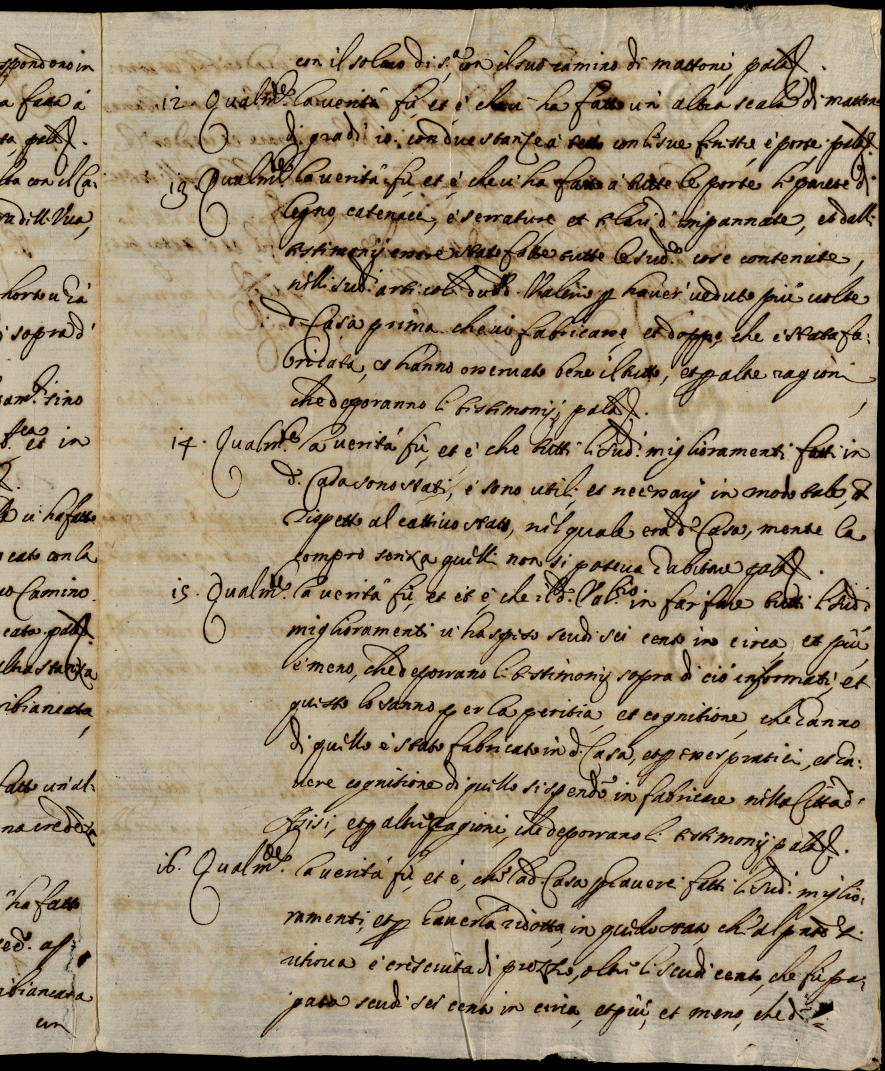 spondono in
a fatta à
ta, palã.
ta con il Ca:
ra dilli Vua,
horto u' hà
di sopra d'
sino
et in
la ui ha fatto
cato con la
uo Camino.
cata palã.
altra stanza
ribiancata,
fatto un' al:
na credeza
ha fatto
ribiancata
con
con il solaro di s.ª con il suo camino di mattoni, palã.
12 Qualm.te la uerità fù, et è che ui ha fatto un' altra scala di mattoni
di gradi 10. con due stanze à tetto con li sue finestre è porte palã.
13 Qualm.te la uerità fù, et è, che ui ha fatto à tutte le porte li parete di
legno, catenacci, è serrature, et telari d' impannate, et dalli
testimonij essere state fatte tutte le sud.e cose contenute,
nelli sud.i articoli dal d.º Valerio p hauer' ueduto più uolte
d.ª Casa prima che ui fabricasse, et doppo, che è stata fa:
bricata, et hanno osseruato bene il tutto, et p altre ragioni
che deporanno li testimonij palã.
14. Qualm.te la uerità fù, et è che tutti li sud.i miglioramenti fatti in
d.ª Casa sono stati, è sono utili, et necessarij in modo tale, et
rispetto al cattiuo stato, nel quale era d.ª Casa, mentre la
comprò senza quelli non si poteua habitare palã.
15. Qualm.te la uerità fù, et è, che il d.º Val.rio in far fare tutti li sud.i
miglioramenti ui ha speso scudi sei cento in circa et più
è meno, che deporrano li testimonij sopra di ciò informati, et
questo lo sanno per la peritia, et cognitione, che hanno
di quello è stato fabricato in d.ª Casa, et p esser pratici, et ha:
uere cognitione di quello si spende in fabricare nella Città d'
Asisi, et p altre ragioni, che deporrano li testimonij palã.
16. Qualm.te la uerità fù, et è, che la d.ª Casa p hauere fatti li sud.i miglio:
ramenti, et p hauerla ridotta in quello stato, che al pnte si
ritroua è cresciuta di prezzo, oltre li scudi cento, che fù pa:
gata scudi sei cento in circa, et più, et meno, che d